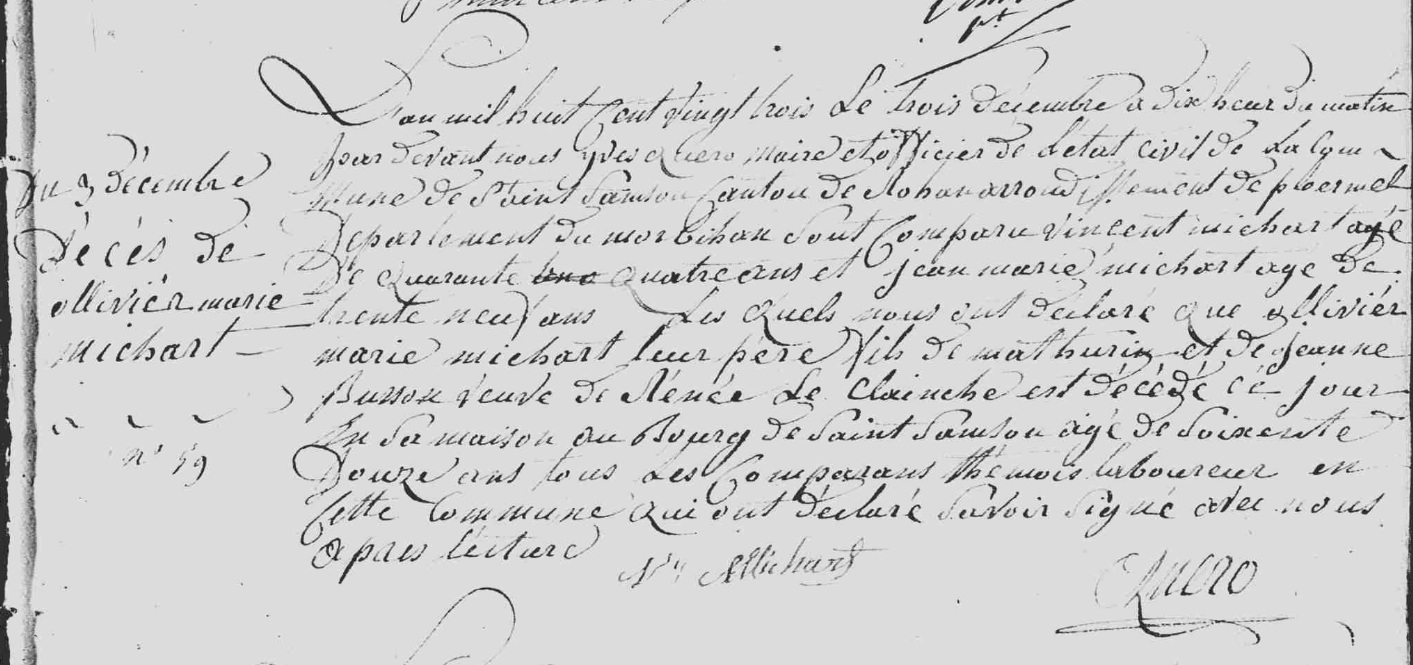 L'an mil huit Cent vingt trois Le trois décembre a dix heur du matin
par devant nous yves quero maire et officier de L'état civil de La Com
mune de Saint Samson Canton de Rohan arrondissement de ploermel
Département du morbihan Sont Comparu vincent michart agé
De quarante quatre ans et jean marie michart age de
trente neuf ans Les quels nous ont déclaré que ollivier
marie michart leur père fils de mathurin et de jeanne
Busson veuve de Rénée Le Clainche est décédé cé jour
En Sa maison au Bourg de Saint Samson agé de Soixente
Douze ans tous Les Comparans thémois laboureur en
Cette Commune qui ont déclaré Savoir Signé avec nous
apres lecture
Michart
Quero
Du 3 décembre
Décés de
ollivier marie
michart
n° 59